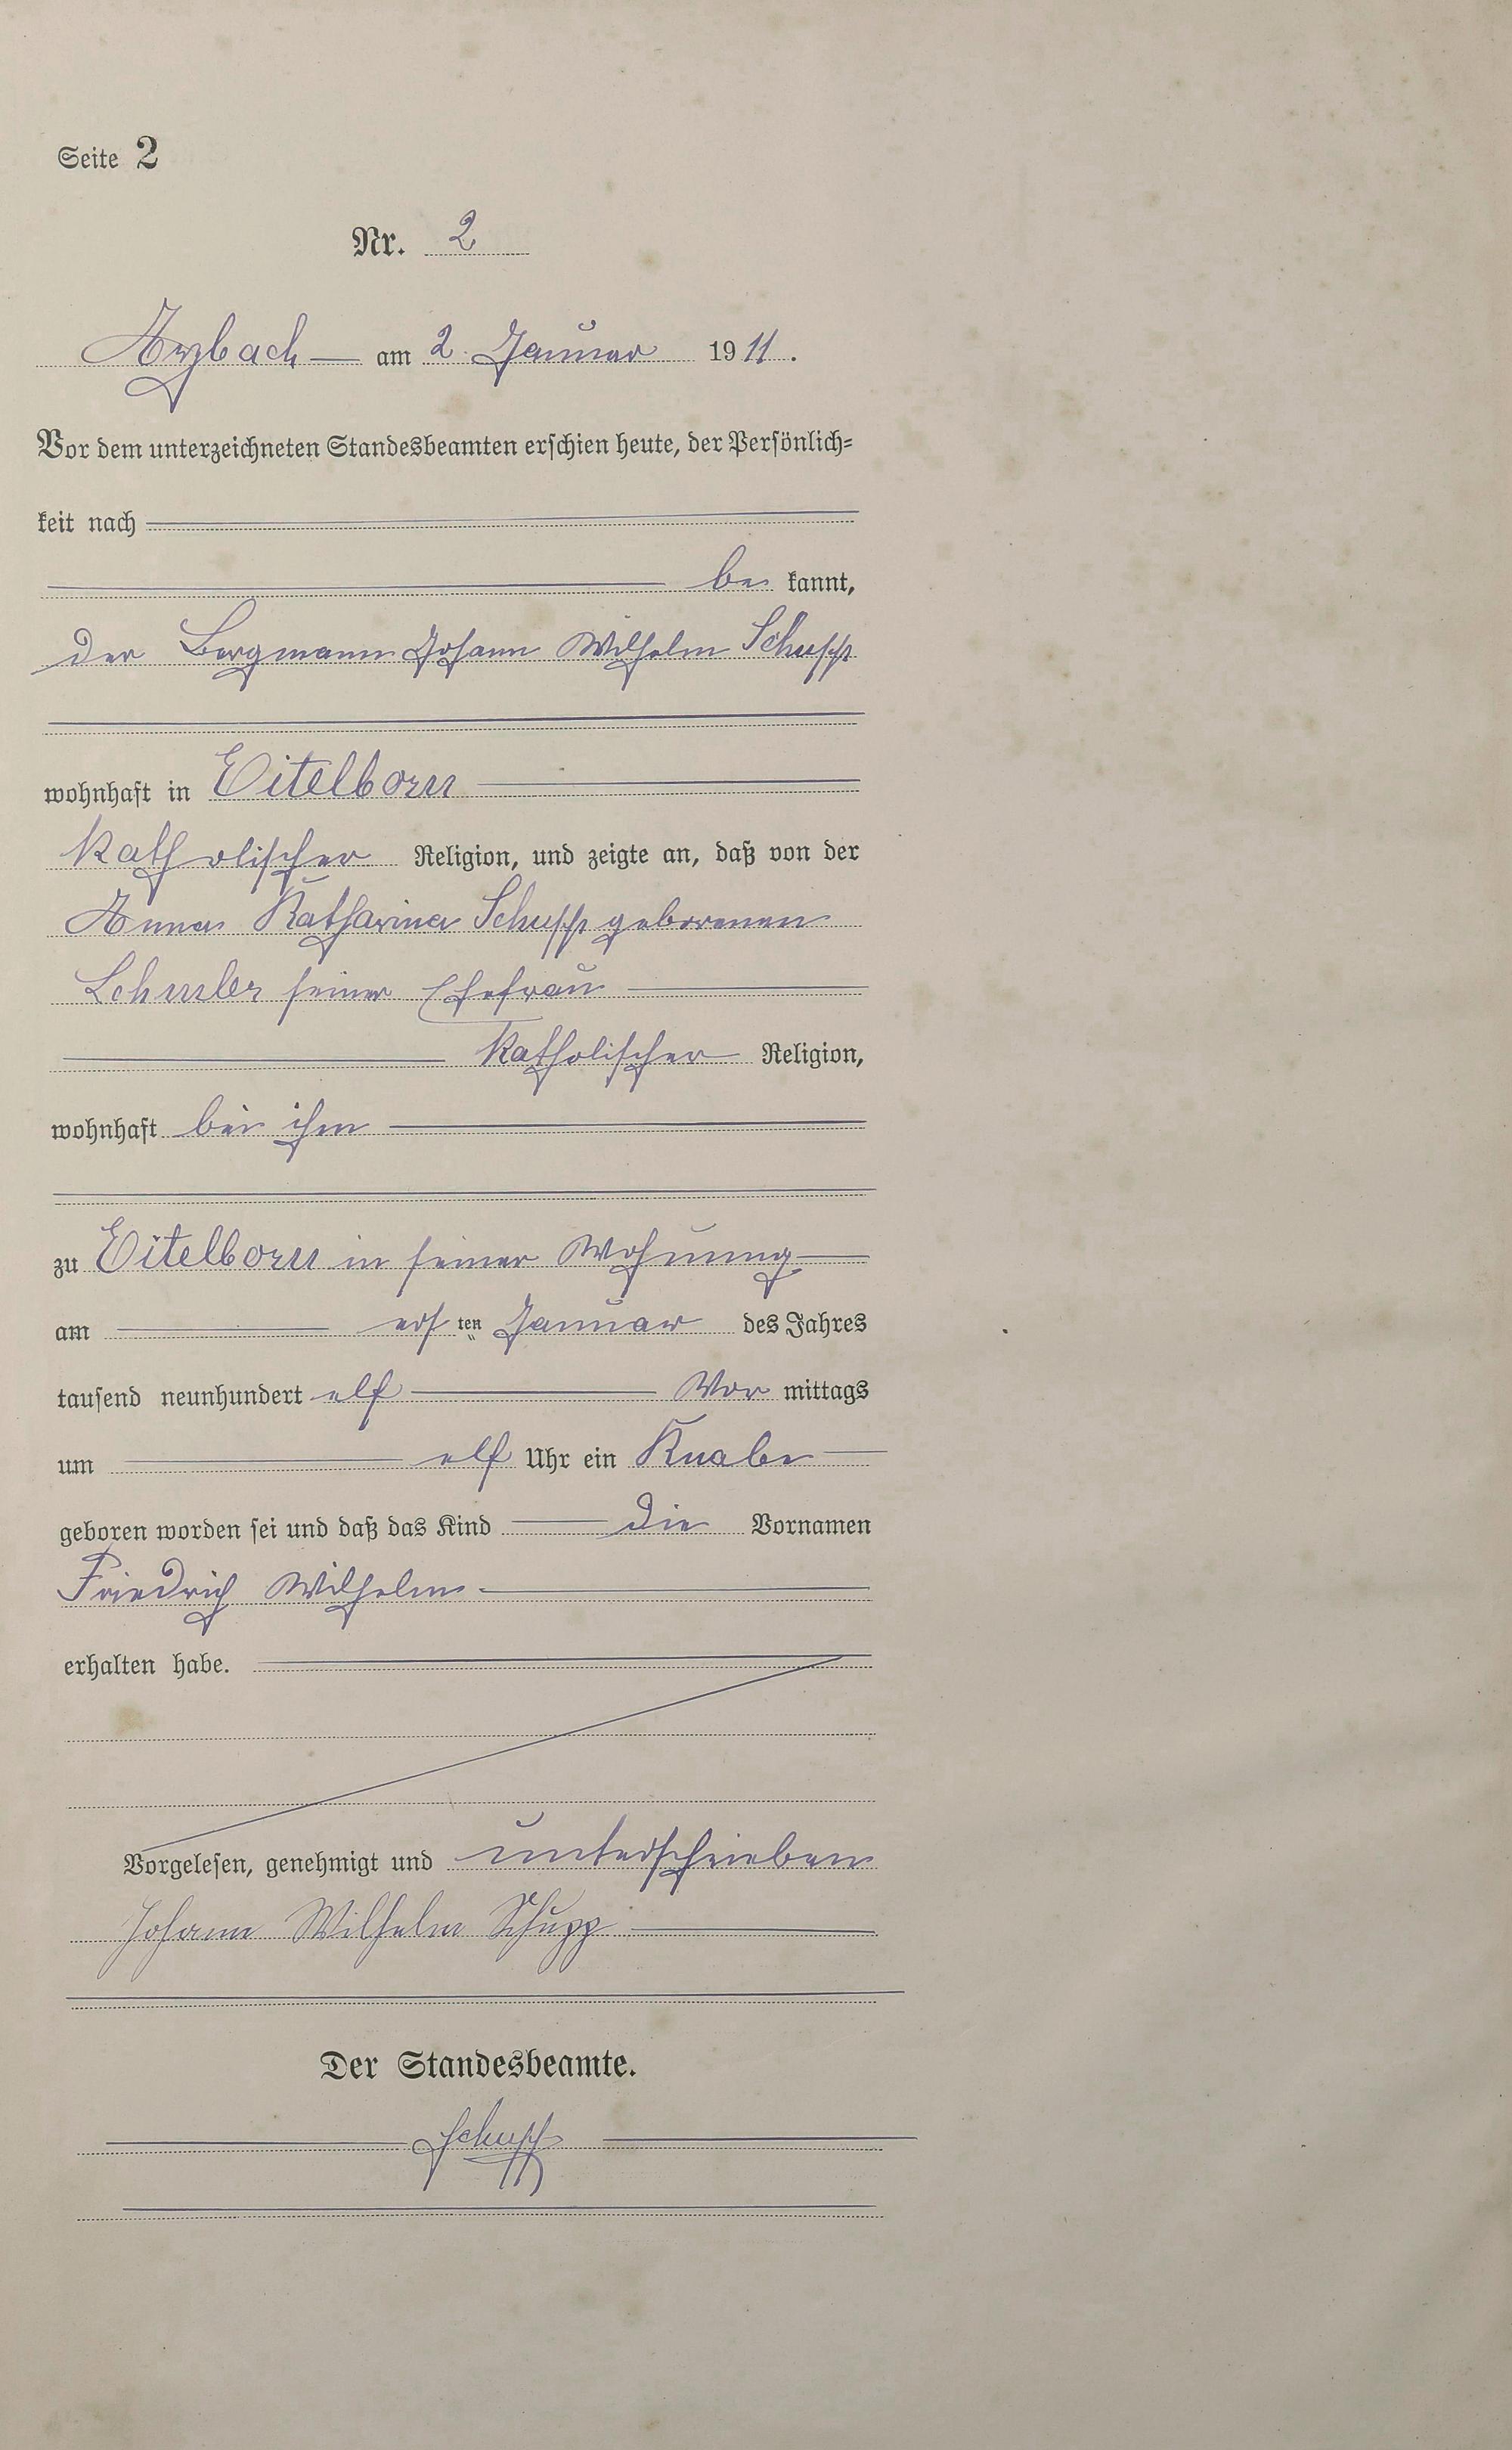 Seite 2
Nr. 2
Arzbach am 2 Januar 1911.
Vor dem unterzeichneten Standesbeamten erschien heute, der Persönlich=
keit nach
be kannt,
der Bergmann Johann Wilhelm Schupp
wohnhaft in Eitelborn
katholischer Religion, und zeigte an, daß von der
Anna Katharina Schupp geborenen
seiner Ehefrau
katholischer Religion,
wohnhaft bei ihm
zu Eitelborn in seiner Wohnung
am ersten Januar des Jahres
tausend neunhundert elf Vor mittags
um elf Uhr ein Knabe
geboren worden sei und daß das Kind die Vornamen
Friedrich Wilhelm
erhalten habe.
Vorgelesen, genehmigt und unterschrieben
Johann Wilhelm Schupp
Der Standesbeamte.
Schupp